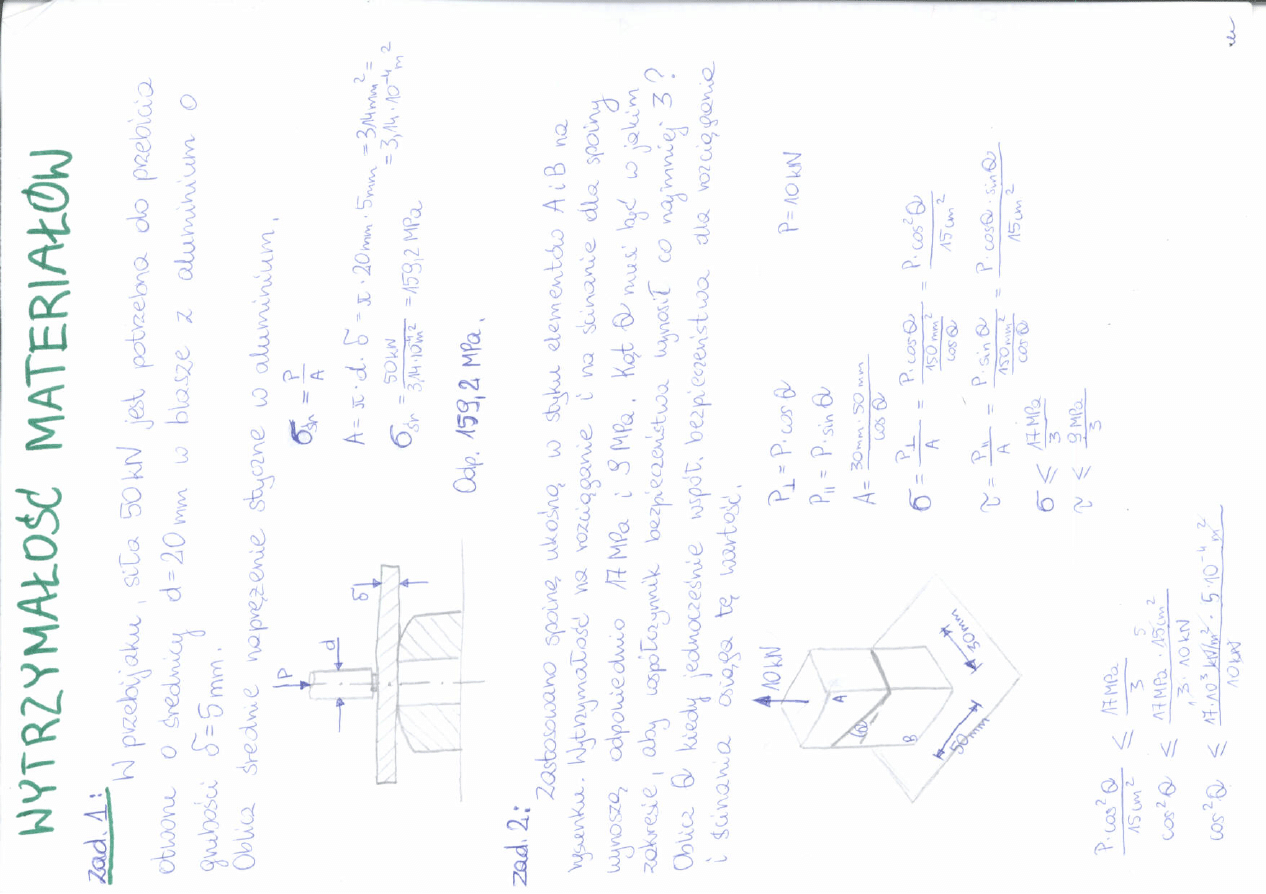 WYTRZYMAŁOŚĆ MATERIAŁÓW
zad. 1:
W przebijaku, siła 50kN jest potrzebna do przebicia
otworu o średnicy d=20mm w blasze z aluminium o
grubości δ=5mm.
Oblicz średnie naprężenie styczne w aluminium.
P
d
δ
σśr = P/A
A = π·d·δ = π·20mm·5mm = 314mm² =
= 3,14·10⁻⁴m²
σśr = 50kN/3,14·10⁻⁴m² = 159,2MPa
Odp. 159,2 MPa.
zad. 2:
Zastosowano spoinę ukośną w styku elementów A i B na
rysunku. Wytrzymałość na rozciąganie i na ścinanie dla spoiny
wynoszą odpowiednio 17MPa i 9MPa. Kąt Θ musi być w jakim
zakresie, aby współczynnik bezpieczeństwa wynosił co najmniej 3?
Oblicz Θ kiedy jednocześnie współ. bezpieczeństwa dla rozciągania
i ścinania osiąga tę wartość.
10kN
A
Θ
B
50mm
30mm
P⊥ = P·cosΘ
P=10kN
P|| = P·sinΘ
A = 30mm·50mm/cosΘ
σ = P⊥/A = P·cosΘ/(150mm²/cosΘ) = P·cos²Θ/15cm²
τ = P||/A = P·sinΘ/(150mm²/cosΘ) = P·cosΘ·sinΘ/15cm²
σ ≤ 17MPa/3
τ ≤ 9MPa/3
P·cos²Θ/15cm² ≤ 17MPa/3
cos²Θ ≤ 17MPa·15cm²/3·10kN
5
1
cos²Θ ≤ 17·10³kN/m²·5·10⁻⁴m²/10kN